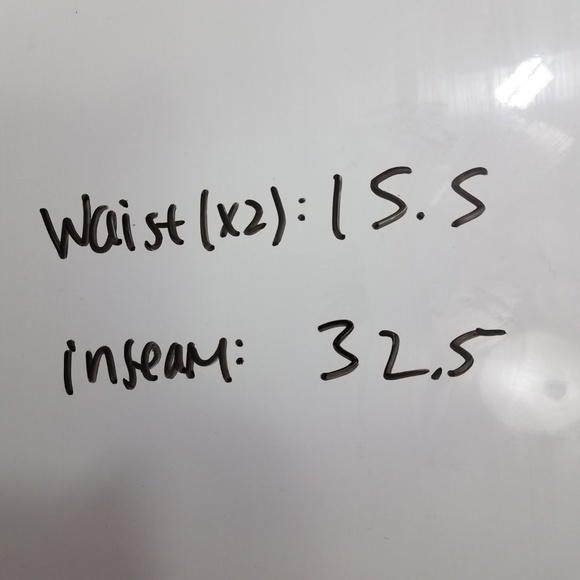 Waist(x2): 15.5
inseam: 32.5